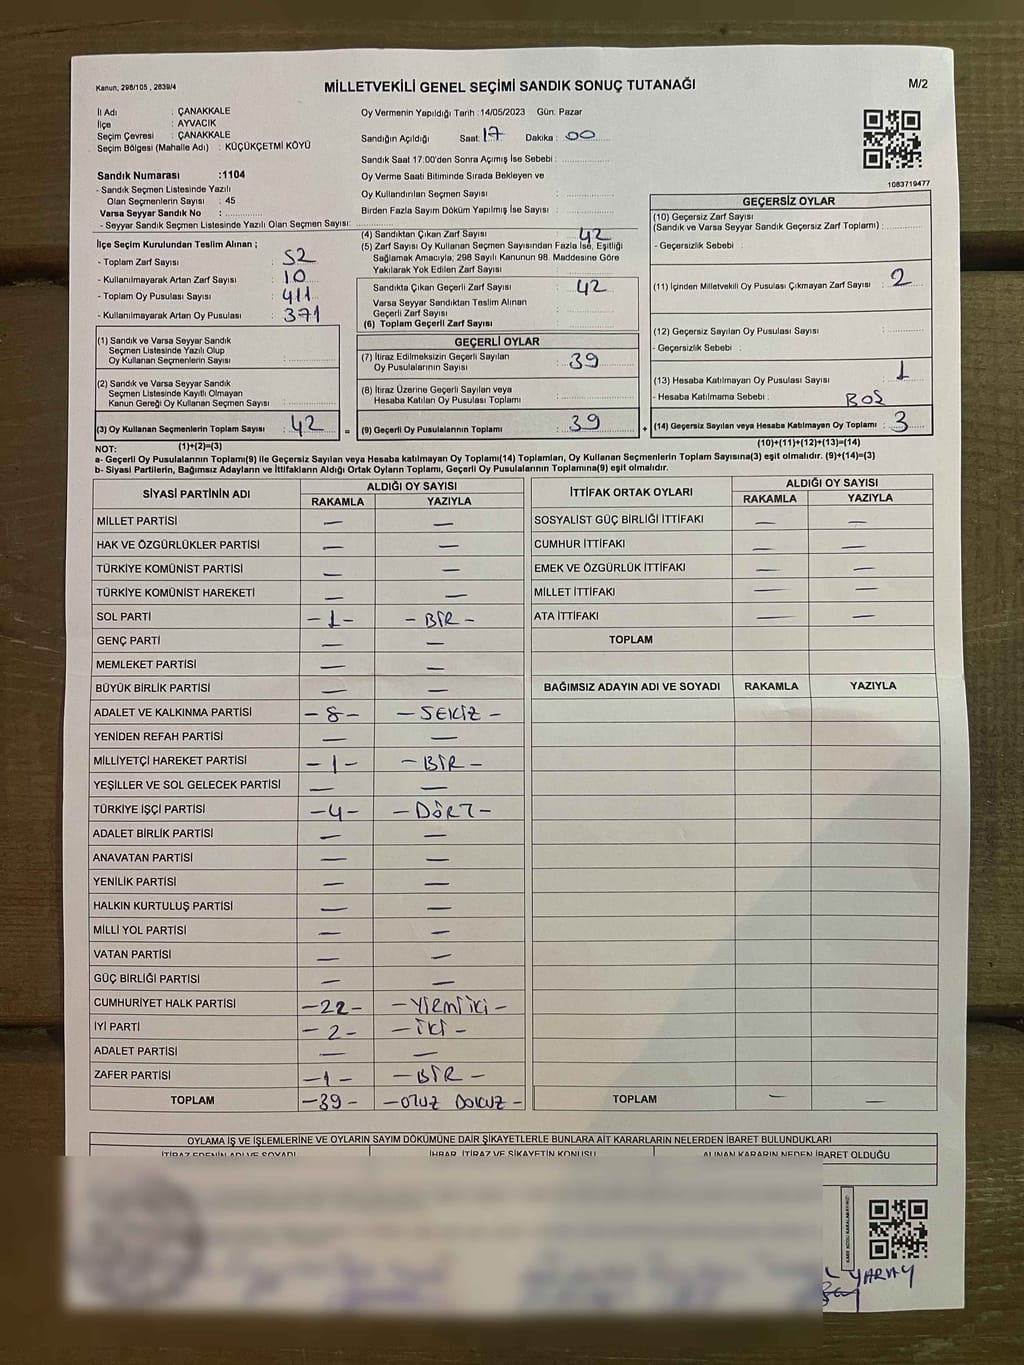 Kanun, 298/105 , 2839/4
MİLLETVEKİLİ GENEL SEÇİMİ SANDIK SONUÇ TUTANAĞI
M/2
İl Adı : ÇANAKKALE
İlçe : AYVACIK
Seçim Çevresi : ÇANAKKALE
Seçim Bölgesi (Mahalle Adı) : KÜÇÜKÇETMİ KÖYÜ
Sandık Numarası :1104
- Sandık Seçmen Listesinde Yazılı
Olan Seçmenlerin Sayısı : 45
Varsa Seyyar Sandık No :
- Seyyar Sandık Seçmen Listesinde Yazılı Olan Seçmen Sayısı:
İlçe Seçim Kurulundan Teslim Alınan ;
- Toplam Zarf Sayısı : 52
- Kullanılmayarak Artan Zarf Sayısı : 10
- Toplam Oy Pusulası Sayısı : 411
- Kullanılmayarak Artan Oy Pusulası : 371
(1) Sandık ve Varsa Seyyar Sandık
Seçmen Listesinde Yazılı Olup
Oy Kullanan Seçmenlerin Sayısı :
(2) Sandık ve Varsa Seyyar Sandık
Seçmen Listesinde Kayıtlı Olmayan
Kanun Gereği Oy Kullanan Seçmen Sayısı :
(3) Oy Kullanan Seçmenlerin Toplam Sayısı : 42
(1)+(2)=(3)
Oy Vermenin Yapıldığı Tarih : 14/05/2023 Gün: Pazar
Sandığın Açıldığı Saat: 17 Dakika : 00
Sandık Saat 17:00'den Sonra Açımış İse Sebebi :
Oy Verme Saati Bitiminde Sırada Bekleyen ve
Oy Kullandırılan Seçmen Sayısı :
Birden Fazla Sayım Döküm Yapılmış İse Sayısı :
(4) Sandıktan Çıkan Zarf Sayısı : 42
(5) Zarf Sayısı Oy Kullanan Seçmen Sayısından Fazla İse, Eşitliği
Sağlamak Amacıyla, 298 Sayılı Kanunun 98. Maddesine Göre
Yakılarak Yok Edilen Zarf Sayısı :
Sandıkta Çıkan Geçerli Zarf Sayısı : 42
Varsa Seyyar Sandıktan Teslim Alınan
Geçerli Zarf Sayısı :
(6) Toplam Geçerli Zarf Sayısı :
GEÇERLİ OYLAR
(7) İtiraz Edilmeksizin Geçerli Sayılan
Oy Pusulalarının Sayısı : 39
(8) İtiraz Üzerine Geçerli Sayılan veya
Hesaba Katılan Oy Pusulası Toplamı :
= (9) Geçerli Oy Pusulalarının Toplamı : 39
1083719477
GEÇERSİZ OYLAR
(10) Geçersiz Zarf Sayısı
(Sandık ve Varsa Seyyar Sandık Geçersiz Zarf Toplamı) :
- Geçersizlik Sebebi :
(11) İçinden Milletvekili Oy Pusulası Çıkmayan Zarf Sayısı : 2
(12) Geçersiz Sayılan Oy Pusulası Sayısı :
- Geçersizlik Sebebi :
(13) Hesaba Katılmayan Oy Pusulası Sayısı : 1
- Hesaba Katılmama Sebebi : BOŞ
+ (14) Geçersiz Sayılan veya Hesaba Katılmayan Oy Toplamı : 3
(10)+(11)+(12)+(13)=(14)
NOT:
a- Geçerli Oy Pusulalarının Toplam(9) ile Geçersiz Sayılan veya Hesaba Katılmayan Oy Toplamı(14) Toplamları, Oy Kullanan Seçmenlerin Toplam Sayısına(3) eşit olmalıdır. (9)+(14)=(3)
b- Siyasi Partilerin, Bağımsız Adayların ve İttifakların Aldığı Ortak Oyların Toplamı, Geçerli Oy Pusulalarının Toplamına(9) eşit olmalıdır.
SİYASİ PARTİNİN ADI ALDIĞI OY SAYISI
RAKAMLA YAZIYLA
MİLLET PARTİSİ — —
HAK VE ÖZGÜRLÜKLER PARTİSİ — —
TÜRKİYE KOMÜNİST PARTİSİ — —
TÜRKİYE KOMÜNİST HAREKETİ — —
SOL PARTİ -1- -BİR-
GENÇ PARTİ — —
MEMLEKET PARTİSİ — —
BÜYÜK BİRLİK PARTİSİ — —
ADALET VE KALKINMA PARTİSİ -8- -SEKİZ-
YENİDEN REFAH PARTİSİ — —
MİLLİYETÇİ HAREKET PARTİSİ -1- -BİR-
YEŞİLLER VE SOL GELECEK PARTİSİ — —
TÜRKİYE İŞÇİ PARTİSİ -4- -DÖRT-
ADALET BİRLİK PARTİSİ — —
ANAVATAN PARTİSİ — —
YENİLİK PARTİSİ — —
HALKIN KURTULUŞ PARTİSİ — —
MİLLİ YOL PARTİSİ — —
VATAN PARTİSİ — —
GÜÇ BİRLİĞİ PARTİSİ — —
CUMHURİYET HALK PARTİSİ -22- -YİRMİ İKİ-
İYİ PARTİ -2- -İKİ-
ADALET PARTİSİ — —
ZAFER PARTİSİ -1- -BİR-
TOPLAM -39- -OTUZ DOKUZ-
İTTİFAK ORTAK OYLARI ALDIĞI OY SAYISI
RAKAMLA YAZIYLA
SOSYALİST GÜÇ BİRLİĞİ İTTİFAKI — —
CUMHUR İTTİFAKI — —
EMEK VE ÖZGÜRLÜK İTTİFAKI — —
MİLLET İTTİFAKI — —
ATA İTTİFAKI — —
TOPLAM
BAĞIMSIZ ADAYIN ADI VE SOYADI RAKAMLA YAZIYLA
TOPLAM — —
OYLAMA İŞ VE İŞLEMLERİNE VE OYLARIN SAYIM DÖKÜMÜNE DAİR ŞİKAYETLERLE BUNLARA AİT KARARLARIN NELERDEN İBARET BULUNDUKLARI
İTİRAZ EDENİN ADI VE SOYADI İHBAR, İTİRAZ VE ŞİKAYETİN KONUSU ALINAN KARARIN NEDEN İBARET OLDUĞU